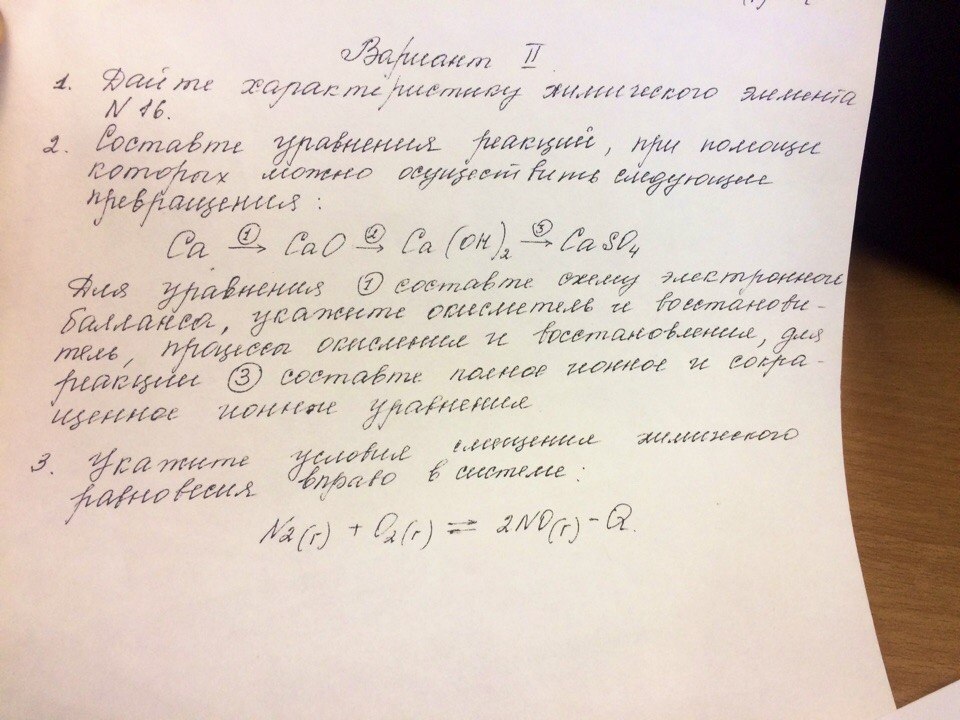 Вариант II
1. Дайте характеристику химического элемента
N 16.
2. Составте уравнения реакций, при помощи
которых можно осуществить следующие
превращения:
Ca ①→ CaO ②→ Ca(OH)₂ ③→ CaSO₄
Для уравнения ① составте схему электронного
балланса, укажите окислитель и восстанови-
тель, процессы окисления и восстановления, для
реакции ③ составте полное ионное и сокра-
щенное ионное уравнения
3. Укажите условия смещения химического
равновесия вправо в системе:
N₂(г) + O₂(г) ⇌ 2NO(г) - Q.